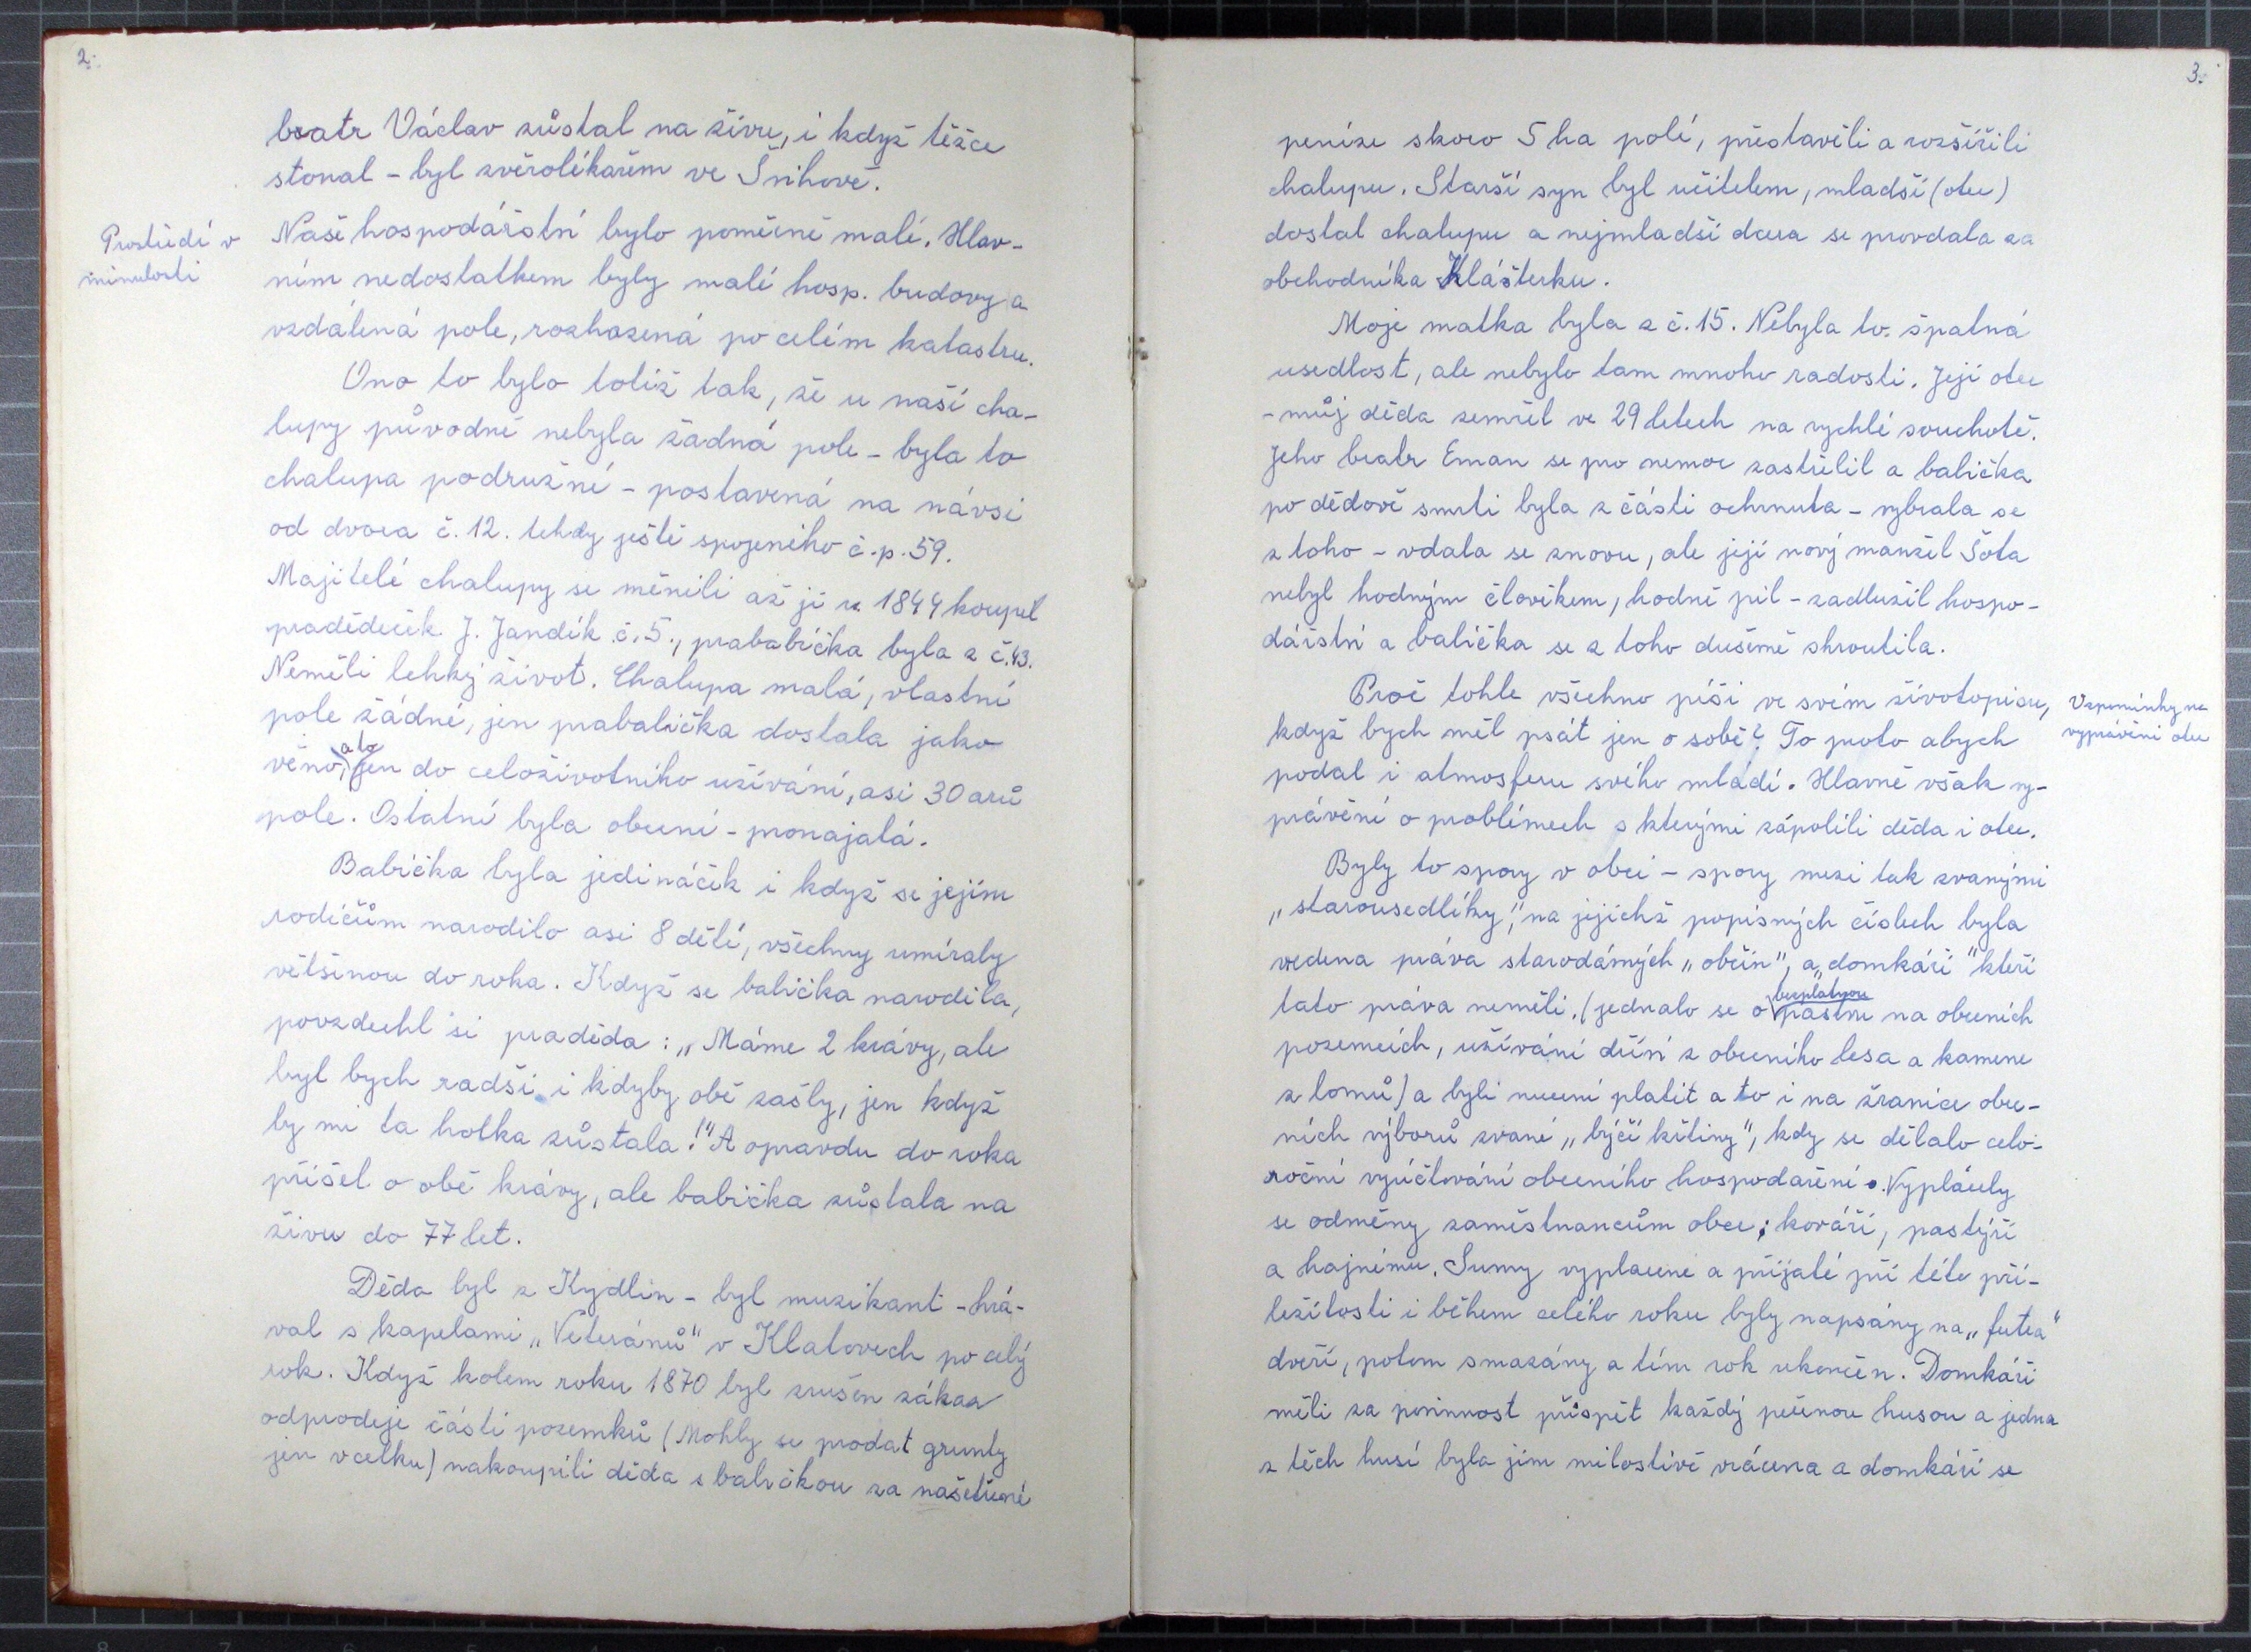 2.
bratr Václav zůstal na živu, i když těžce
stonal - byl zvěrolékařem ve Švihově.
Prostředí v
minulosti
Naše hospodářství bylo poměrně malé. Hlav-
ním nedostatkem byly malé hosp. budovy a
vzdálená pole, rozházená po celém katastru.
Ono to bylo totiž tak, že u naší cha-
lupy původně nebyla žádná pole - byla to
chalupa podružní - postavená na návsi
od dvora č. 12. tehdy ještě spojeného č.p. 59.
Majitelé chalupy se měnili až ji r. 1844 koupil
pradědeček J. Jandík č. 5., prababička byla z č. 43.
Neměli lehký život. Chalupa malá, vlastní
pole žádné, jen prababička dostala jako
věno, a to jen do celoživotního užívání, asi 30 arů
pole. Ostatní byla obecní - pronajatá.
Babička byla jedináček i když se jejím
rodičům narodilo asi 8 dětí, všechny umíraly
většinou do roka. Když se babička narodila,
povzdechl si praděda: „Máme 2 krávy, ale
byl bych radši i kdyby obě zašly, jen když
by mi ta holka zůstala!" A opravdu do roka
přišel o obě krávy, ale babička zůstala na
živu do 77 let.
Děda byl z Kydlin - byl muzikant - hrá-
val s kapelami „Veteránů" v Klatovech po celý
rok. Když kolem roku 1870 byl zrušen zákaz
odprodeje části pozemků (Mohly se prodat grunty
jen vcelku) nakoupili děda s babičkou za našetřené
3.
peníze skoro 5 ha polí, přestavěli a rozšířili
chalupu. Starší syn byl učitelem, mladší (otec)
dostal chalupu a nejmladší dcera se provdala za
obchodníka Klášterku.
Moje matka byla z č. 15. Nebyla to špatná
usedlost, ale nebylo tam mnoho radosti. Její otec
- můj děda zemřel ve 29 letech na rychlé souchotě.
Jeho bratr Eman se pro nemoc zastřelil a babička
po dědově smrti byla z části ochrnuta - vybrala se
z toho - vdala se znovu, ale její nový manžel Šota
nebyl hodným člověkem, hodně pil - zadlužil hospo-
dářství a babička se z toho duševně zhroutila.
Proč tohle všechno píši ve svém životopise,
Vzpomínky na
vyprávění otce
když bych měl psát jen o sobě? To proto abych
podal i atmosferu svého mládí. Hlavně však vy-
právění o problémech s kterými zápolili děda i otec.
Byly to spory v obci - spory mezi tak zvanými
„starousedlíky", na jejichž popisných číslech byla
vedena práva starodávných „občin", a „domkáři" kteří
tato práva neměli. (jednalo se o bezplatnou pastvu na obecních
pozemcích, užívání dříví z obecního lesa a kamene
z lomů) a byli nuceni platit a to i na žranice obec-
ních výborů zvané „býčí křtiny", kdy se dělalo celo-
roční vyúčtování obecního hospodaření. Vyplácely
se odměny zaměstnancům obce; kováři, pastýři
a hajnému. Sumy vyplacené a přijaté při této pří-
ležitosti i během celého roku byly napsány na „futra"
dveří, potom smazány a tím rok ukončen. Domkáři
měli za povinnost přispět každý pečenou husou a jedna
z těch husí byla jim milostivě vrácena a domkáři se